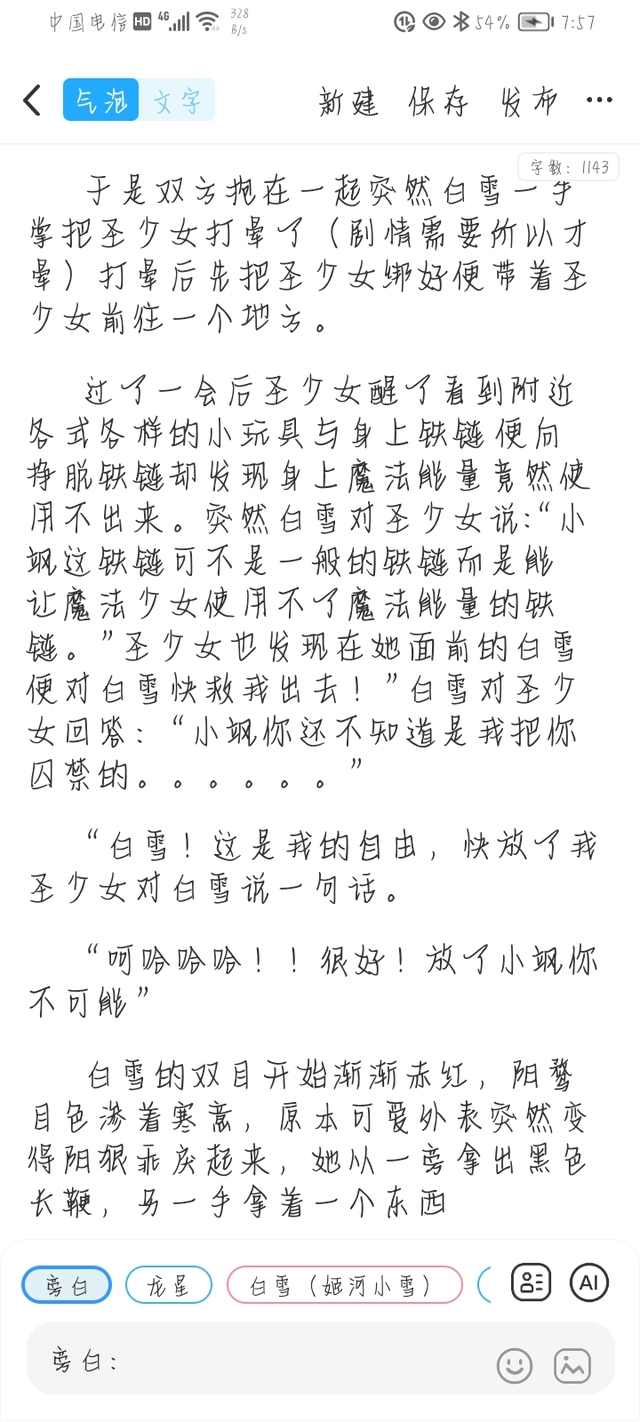 中国电信 HD 4G 328 B/s N 54% 7:57
气泡 文字 新建 保存 发布 ...
字数: 1143
于是双方抱在一起突然白雪一手
掌把圣少女打晕了（剧情需要所以才
晕）打晕后先把圣少女绑好便带着圣
少女前往一个地方。
过了一会后圣少女醒了看到附近
各式各样的小玩具与身上铁链便向
挣脱铁链却发现身上魔法能量竟然使
用不出来。突然白雪对圣少女说:“小
飒这铁链可不是一般的铁链而是能
让魔法少女使用不了魔法能量的铁
链。”圣少女也发现在她面前的白雪
便对白雪快救我出去！”白雪对圣少
女回答：“小飒你还不知道是我把你
囚禁的。。。。。。”
“白雪！这是我的自由，快放了我
圣少女对白雪说一句话。
“呵哈哈哈！！很好！放了小飒你
不可能”
白雪的双目开始渐渐赤红，阴鹜
目色渗着寒意，原本可爱外表突然变
得阴狠乖戾起来，她从一旁拿出黑色
长鞭，另一手拿着一个东西
旁白 龙星 白雪（姬河小雪） AI
旁白：